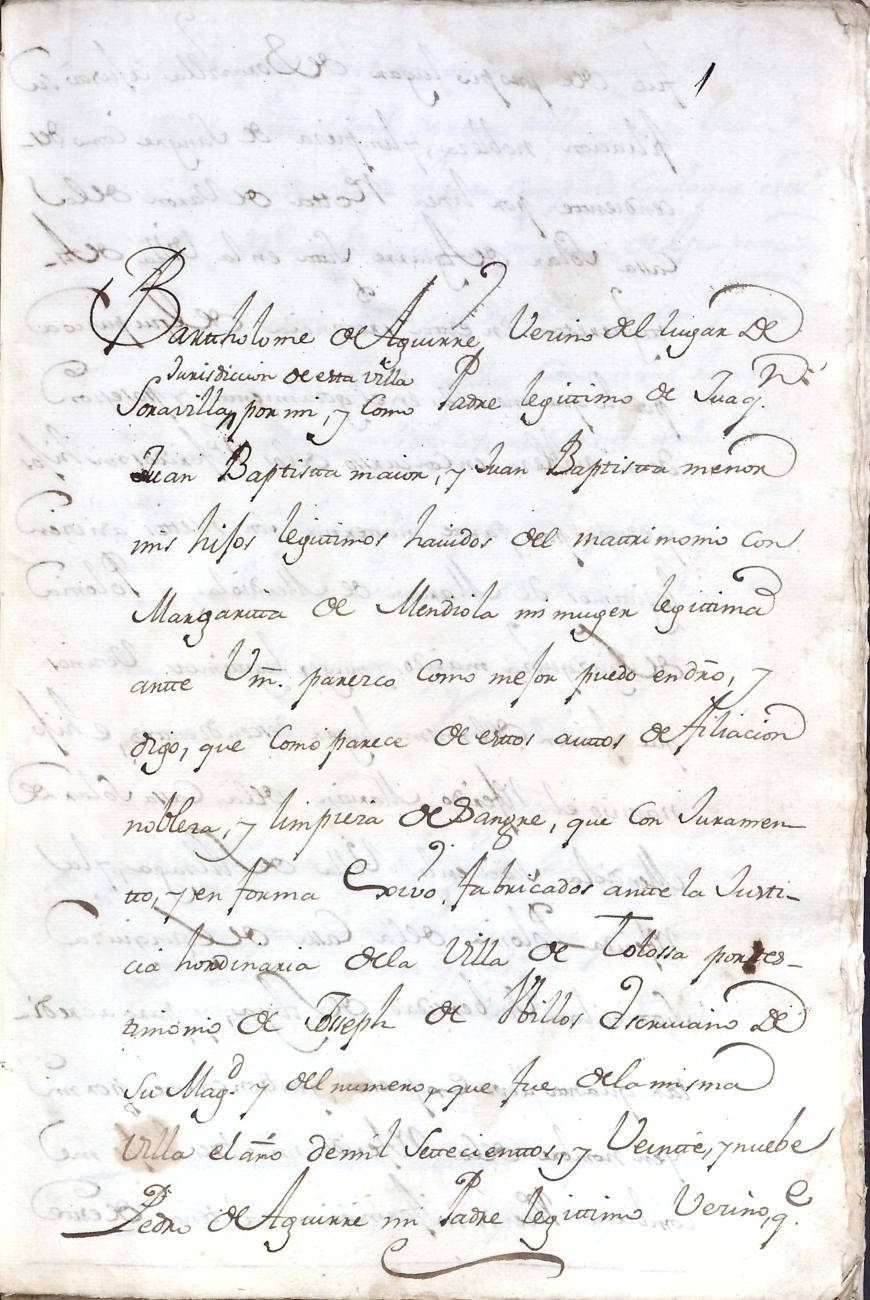 1
Bartholome de Aguirre Vezino del lugar de
Jurisdiccion de esta villa
Soravilla, por mi, y como Padre legittimo de Juaqn.
Juan Baptista maior, y Juan Baptista menor
mis hijos legittimos havidos del mattrimonio con
Margaritta de Mendiola mi muger legittima
antte Vm. parezco como mejor puedo en dro, y
digo, que como parece de esttos auttos de filiacion
nobleza, y limpieza de Sangre, que con Juramen-
tto, y en forma fabricados antte la Justi-
cia hordinaria de la Villa de Tolossa por tes-
timonio de Joseph de Escriviano de
Su Magd. y del numero, que fue de la misma
Villa el año de mil settecienttos, y Veintte, y nuebe
Pedro de Aguirre mi Padre legittimo Vezino, qe.